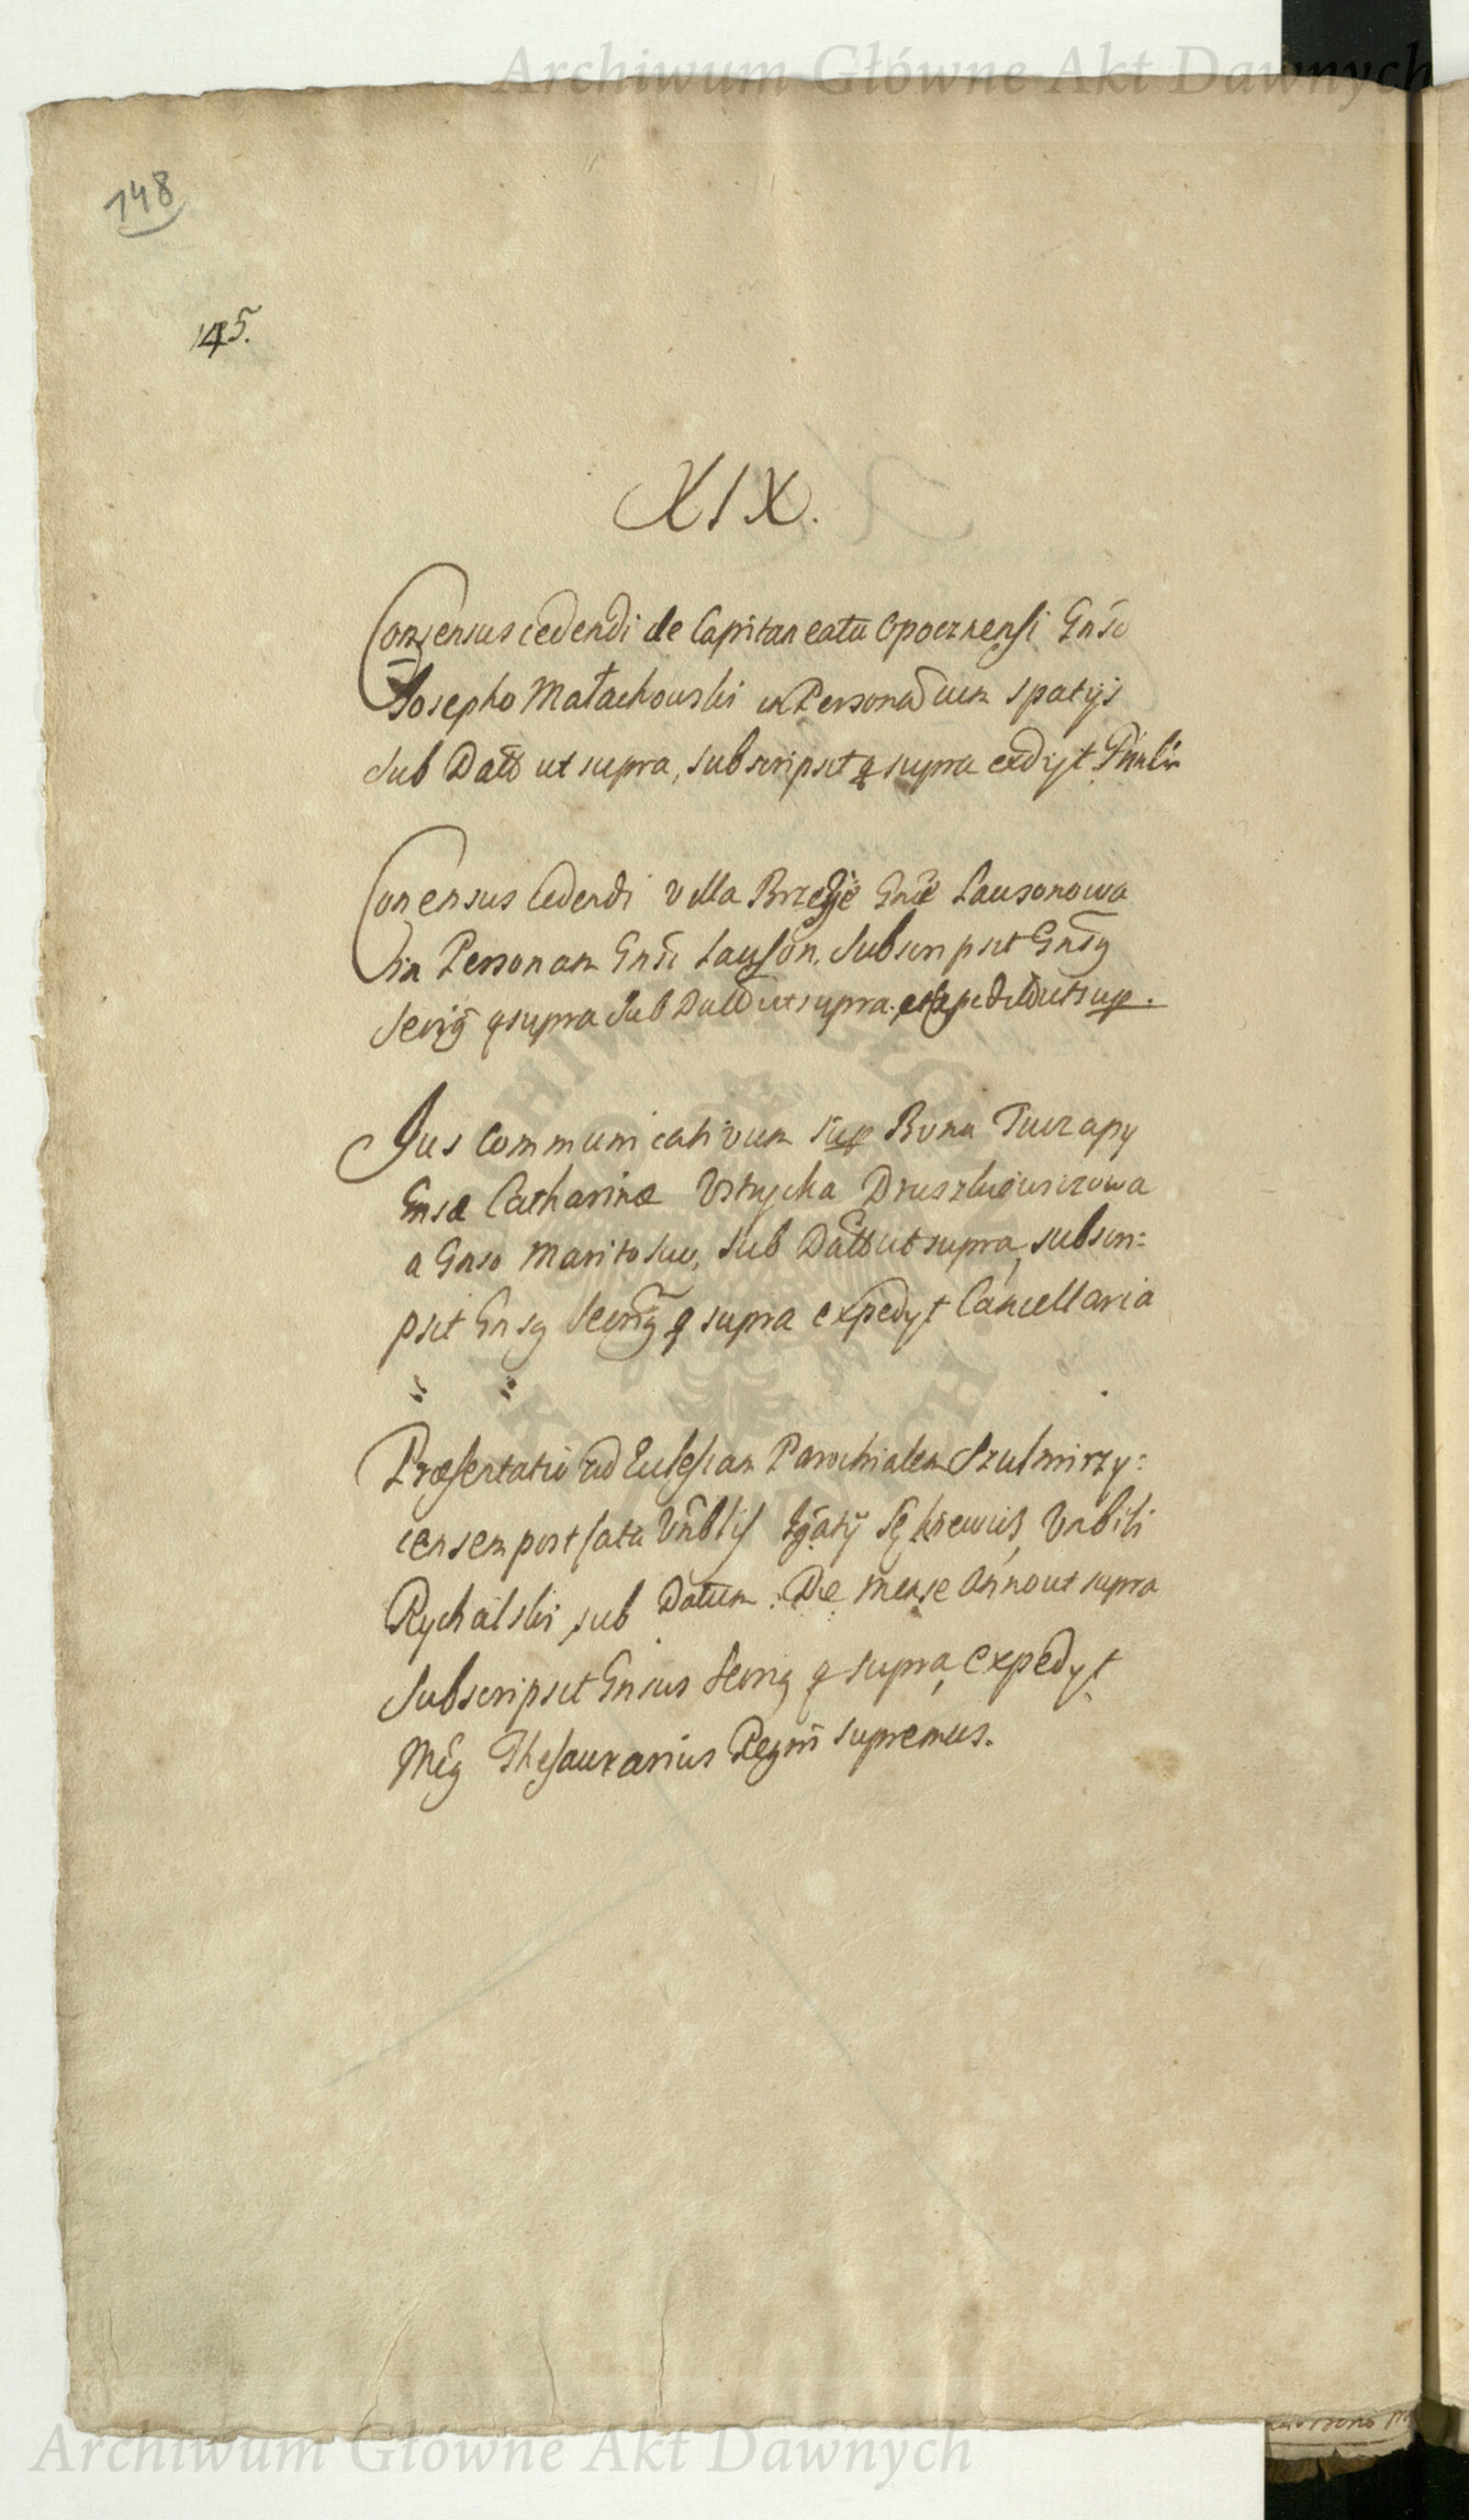 Archiwum Główne Akt Dawnych
148
145.
XIX.
Consensus cedendi de Capitaneatu Opocznensi Gnso
Josepho Małachowski in Personam cum spatijs
Sub Datt ut supra, subscripsit q supra exdijt
Consensus Cedendi Villa Brzezie Gnae Lausonowa
in Personam Gnsi Lauson. Subscripsit Gnsq
Secriq q supra Sub Datt ut supra. expedit ut sup.
Jus Communicativum sup Bona Turzapy
Gnsae Catharinae Ustrycka Druszkiewiczowa
a Gnso Marito suo, sub Datt ut supra, subscri=
psit Gnsq Secriq q supra expedyt Cancellaria
Praesentatio ad Ecclesiam Parochialem Szulmirzy=
censem post fata Vnblis Ignatij Sękiewicz, Vnbili
Rychalski, sub Datum. Die mense Anno ut supra
Subscripsit Gnsus Secriq q supra, expedyt
Mcq Thesaurarius Regni supremus.
Archiwum Główne Akt Dawnych